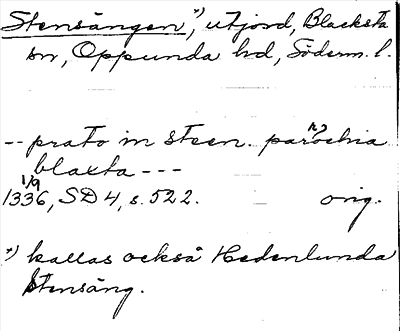 Stensängen *), utjord, Blacksta
sn, Oppunda hd, Söderm. l.
-- prato in steen. parochia
blaxta ---
1/9
1336, SD 4, s. 522. orig.
*) kallas också Hedenlunda
Stensäng.